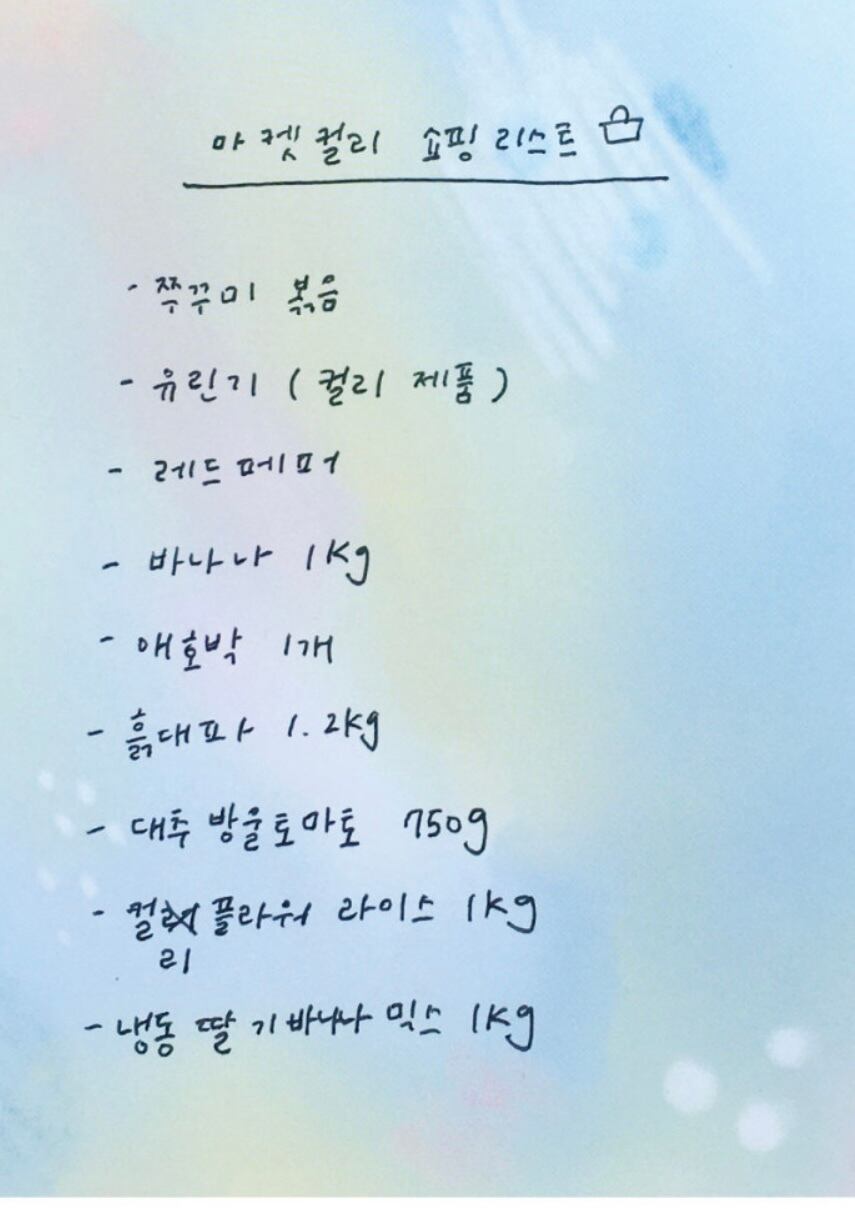 마켓컬리 쇼핑리스트
- 쭈꾸미 볶음
- 유린기 (컬리 제품)
- 레드페퍼
- 바나나 1kg
- 애호박 1개
- 흙대파 1.2kg
- 대추 방울토마토 750g
- 컬리플라워 라이스 1kg
- 냉동 딸기바나나 믹스 1kg